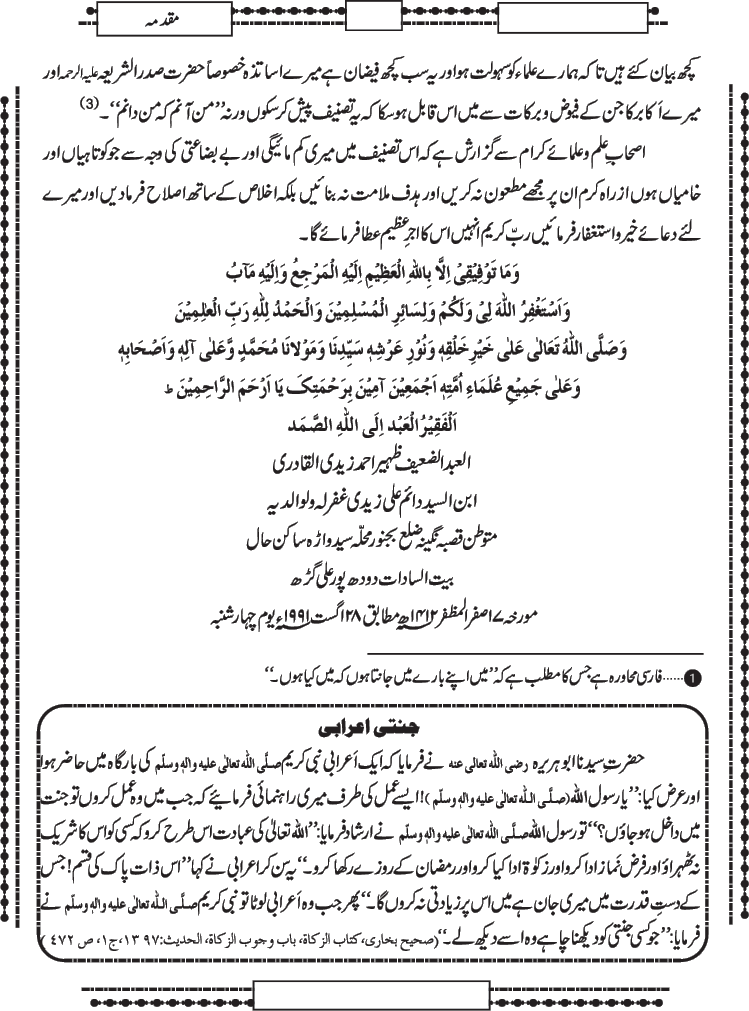 مقدمہ
کچھ بیان کئے ہیں تاکہ ہمارے علماء کو سہولت ہو اور یہ سب کچھ فیضان ہے میرے اساتذہ خصوصاً حضرت صدر الشریعہ علیہ الرحمہ اور
میرے اَکابر کا جن کے فیوض و برکات سے میں اس قابل ہو سکا کہ یہ تصنیف پیش کر سکوں ورنہ ’’من آنم کہ من دانم‘‘۔(3)
اصحابِ علم و علمائے کرام سے گزارش ہے کہ اس تصنیف میں میری کم مائیگی اور بے بضاعتی کی وجہ سے جو کوتاہیاں اور
خامیاں ہوں از راہ کرم ان پر مجھے مطعون نہ کریں اور ہدف ملامت نہ بنائیں بلکہ اخلاص کے ساتھ اصلاح فرما دیں اور میرے
لئے دعائے خیر و استغفار فرمائیں ربّ کریم انہیں اس کا اجرِ عظیم عطا فرمائے گا۔
وَمَا تَوْفِیْقِیْ اِلَّا بِاللّٰہِ الْعَظِیْمِ اِلَیْہِ الْمَرْجِعُ وَاِلَیْہِ مَآبُ
وَاَسْتَغْفِرُ اللّٰہَ لِیْ وَلَکُمْ وَلِسَائِرِ الْمُسْلِمِیْنَ وَالْحَمْدُ لِلّٰہِ رَبِّ الْعٰلَمِیْنَ
وَصَلَّی اللّٰہُ تَعَالٰی عَلٰی خَیْرِ خَلْقِہٖ وَنُوْرِ عَرْشِہٖ سَیِّدِنَا وَمَوْلَانَا مُحَمَّدٍ وَّعَلٰی آلِہٖ وَاَصْحَابِہٖ
وَعَلٰی جَمِیْعِ عُلَمَاءِ اُمَّتِہٖ اَجْمَعِیْنَ آمِیْنَ بِرَحْمَتِکَ یَا اَرْحَمَ الرَّاحِمِیْنَ ط
اَلْفَقِیْرُ الْعَبْد اِلَی اللّٰہِ الصَّمَد
العبد الضعیف ظہیر احمد زیدی القادری
ابن السید دائم علی زیدی غفرلہ ولوالدیہ
متوطن قصبہ نگینہ ضلع بجنور محلّہ سیدواڑہ ساکن حال
بیت السادات دودھ پور علی گڑھ
مورخہ ۱۷صفر المظفر ۱۴۱۲ھ مطابق ۲۸اگست ۱۹۹۱ء یوم چہار شنبہ
1 ......فارسی محاورہ ہے جس کا مطلب ہے کہ ’’میں اپنے بارے میں جانتا ہوں کہ میں کیا ہوں۔‘‘
جنتی اعرابی
حضرتِ سیدنا ابو ہریرہ رضی اللہ تعالٰی عنہ نے فرمایا کہ ایک اَعرابی نبی کریم صلَّی اللہ تعالٰی علیہ واٰلہٖ وسلَّم کی بارگاہ میں حاضر ہوا
اور عرض کیا: ’’یا رسول اللہ (صلَّی اللہ تعالٰی علیہ واٰلہٖ وسلَّم)! ایسے عمل کی طرف میری راہنمائی فرمایئے کہ جب میں وہ عمل کروں تو جنت
میں داخل ہو جاؤں؟‘‘ تو رسول اللہ صلَّی اللہ تعالٰی علیہ واٰلہٖ وسلَّم نے ارشاد فرمایا: ’’اللہ تعالیٰ کی عبادت اس طرح کرو کہ کسی کو اس کا شریک
نہ ٹھہراؤ اور فرض نَماز ادا کرو اور زکوٰۃ ادا کیا کرو اور رمضان کے روزے رکھا کرو۔‘‘ یہ سن کر اعرابی نے کہا ’’اس ذات پاک کی قسم! جس
کے دستِ قدرت میں میری جان ہے میں اس پر زیادتی نہ کروں گا۔‘‘ پھر جب وہ اَعرابی لوٹا تو نبی کریم صلَّی اللہ تعالٰی علیہ واٰلہٖ وسلَّم نے
فرمایا: ’’جو کسی جنتی کو دیکھنا چاہے وہ اسے دیکھ لے۔‘‘ (صحیح بخاری، کتاب الزکاۃ، باب وجوب الزکاۃ، الحدیث: ۱۳۹۷، ج۱، ص ۴۷۲)